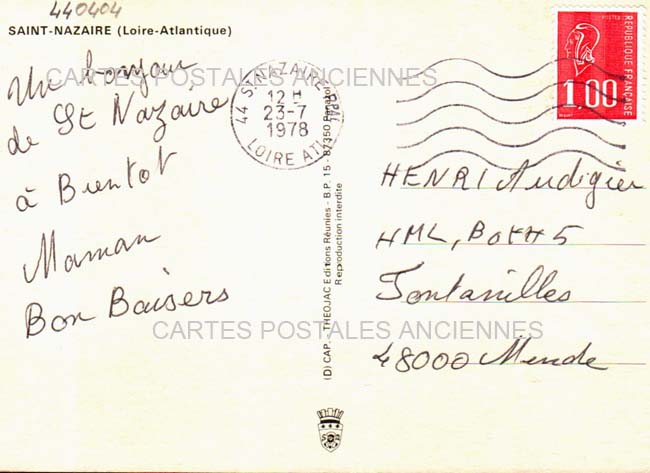 440404
SAINT-NAZAIRE (Loire-Atlantique)
Un bonjour
de St Nazaire
à Bientot
Maman
Bon Baisers
CARTES POSTALES ANCIENNES
44 ST NAZAIRE PPAL
12 H
23-7
1978
LOIRE ATL
POSTES
REPUBLIQUE FRANÇAISE
1,00
(D) CAP. - THEOJAC Editions Réunies - B.P. 15 - 87350 Panazol
Reproduction interdite
HENRI Audigier
HML, Bat H 5
Fontanilles
48000 Mende
CARTES POSTALES ANCIENNES